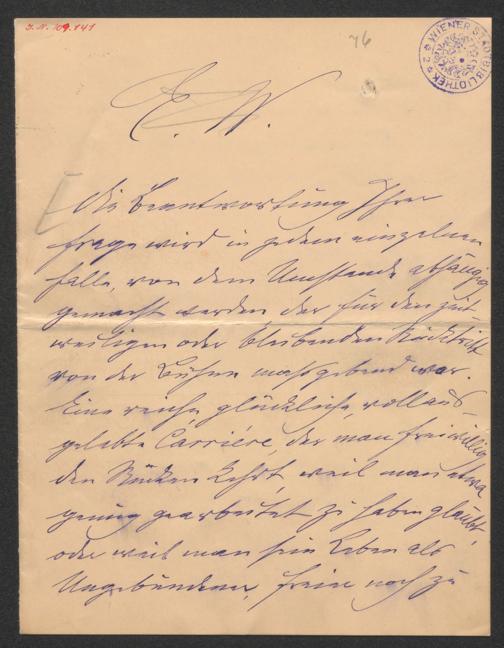 J.N. 109.141
76
WIENER STADTBIBLIOTHEK * 2 *
E. W.
Die Beantwortung Ihrer
Frage wird in jedem einzelnen
Falle, von dem Umstande abhängig
gemacht werden der für den zeit
weiligen oder bleibenden Rücktritt
von der Bühne maßgebend war.
Eine reiche, glückliche, vollaus-
gelebte Carrière, der man freiwillig
den Rücken kehrt, weil man etwa
genug gearbeitet zu haben glaubt,
oder weil man sein Leben als
Ungebundene, freie noch zu